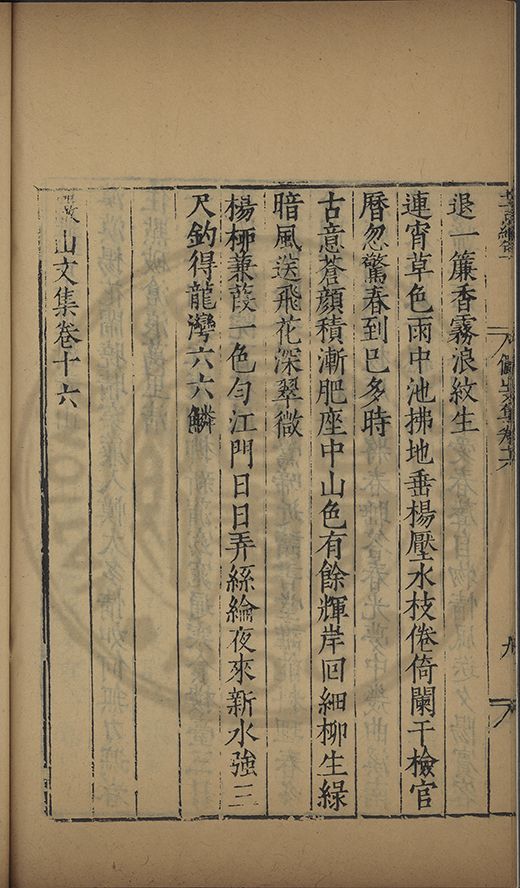 退一簾香霧浪紋生
連宵草色雨中池拂地垂楊壓水枝倦倚闌干檢官
曆忽驚春到已多時
古意蒼顔積漸肥座中山色有餘輝岸回細柳生綠
暗風送飛花深翠微
楊柳蒹葭一色勻江門日日弄絲綸夜來新水強三
尺釣得龍灣六六鱗
山文集卷十六
九